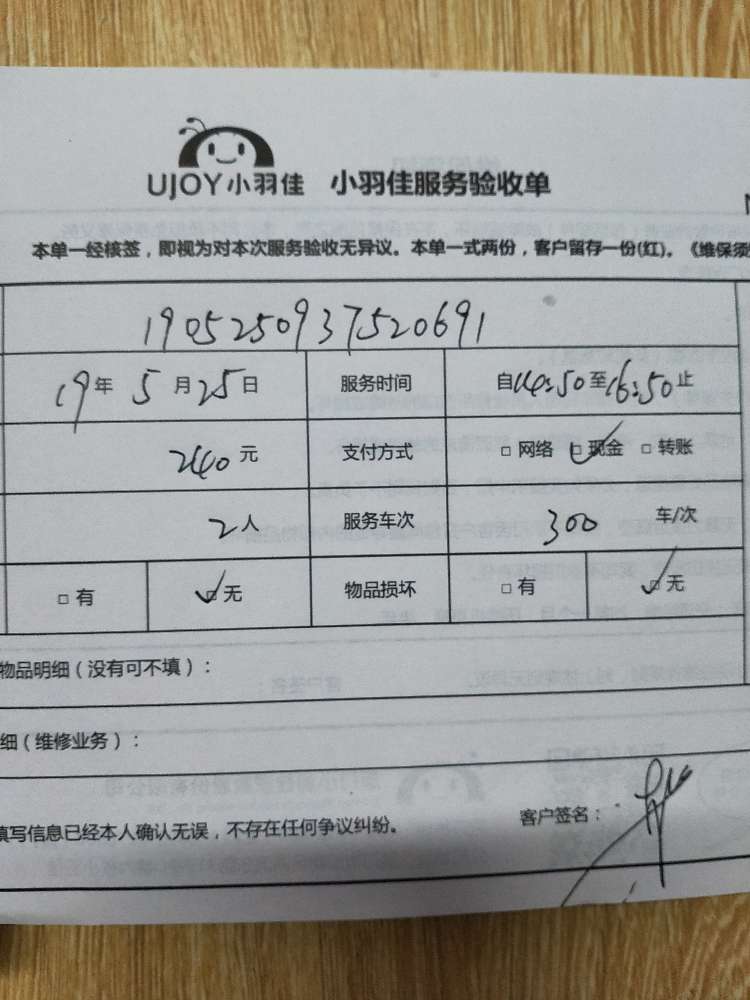 UJOY小羽佳 小羽佳服务验收单
本单一经核签，即视为对本次服务验收无异议。本单一式两份，客户留存一份(红)。《维保须
1905250937520691
19年 5月25日 服务时间 自14:50至16:50止
240元 支付方式 □ 网络 □ 现金 □ 转账
2人 服务车次 300 车/次
□ 有 □ 无 物品损坏 □ 有 □ 无
物品明细（没有可不填）：
细（维修业务）：
填写信息已经本人确认无误，不存在任何争议纠纷。 客户签名：